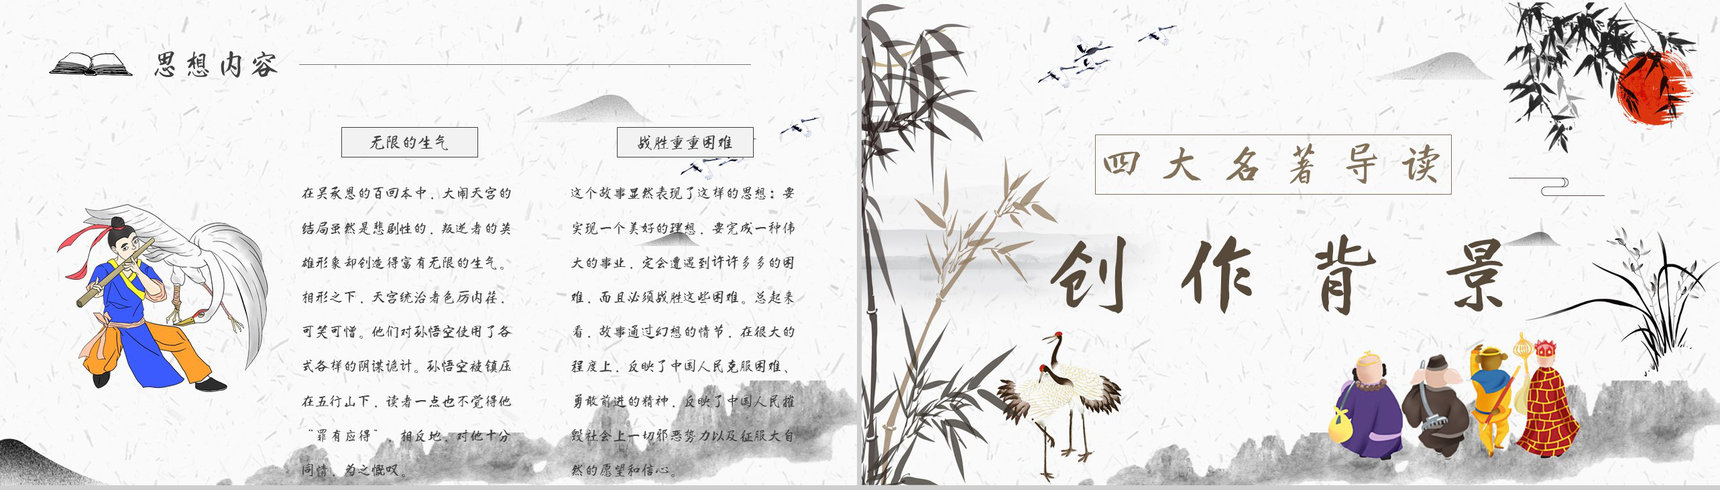 思想内容
无限的生气
在吴承恩的百回本中，大闹天宫的
结局虽然是悲剧性的，叛逆者的英
雄形象却创造得富有无限的生气。
相形之下，天宫统治者色厉内荏，
可笑可憎。他们对孙悟空使用了各
式各样的阴谋诡计。孙悟空被镇压
在五行山下，读者一点也不觉得他
“罪有应得”，相反地，对他十分
同情，为之慨叹。
战胜重重困难
这个故事显然表现了这样的思想：要
实现一个美好的理想，要完成一种伟
大的事业，定会遭遇到许许多多的困
难，而且必须战胜这些困难。总起来
看，故事通过幻想的情节，在很大的
程度上，反映了中国人民克服困难、
勇敢前进的精神，反映了中国人民摧
毁社会上一切邪恶势力以及征服大自
然的愿望和信心。
四大名著导读
创作背景